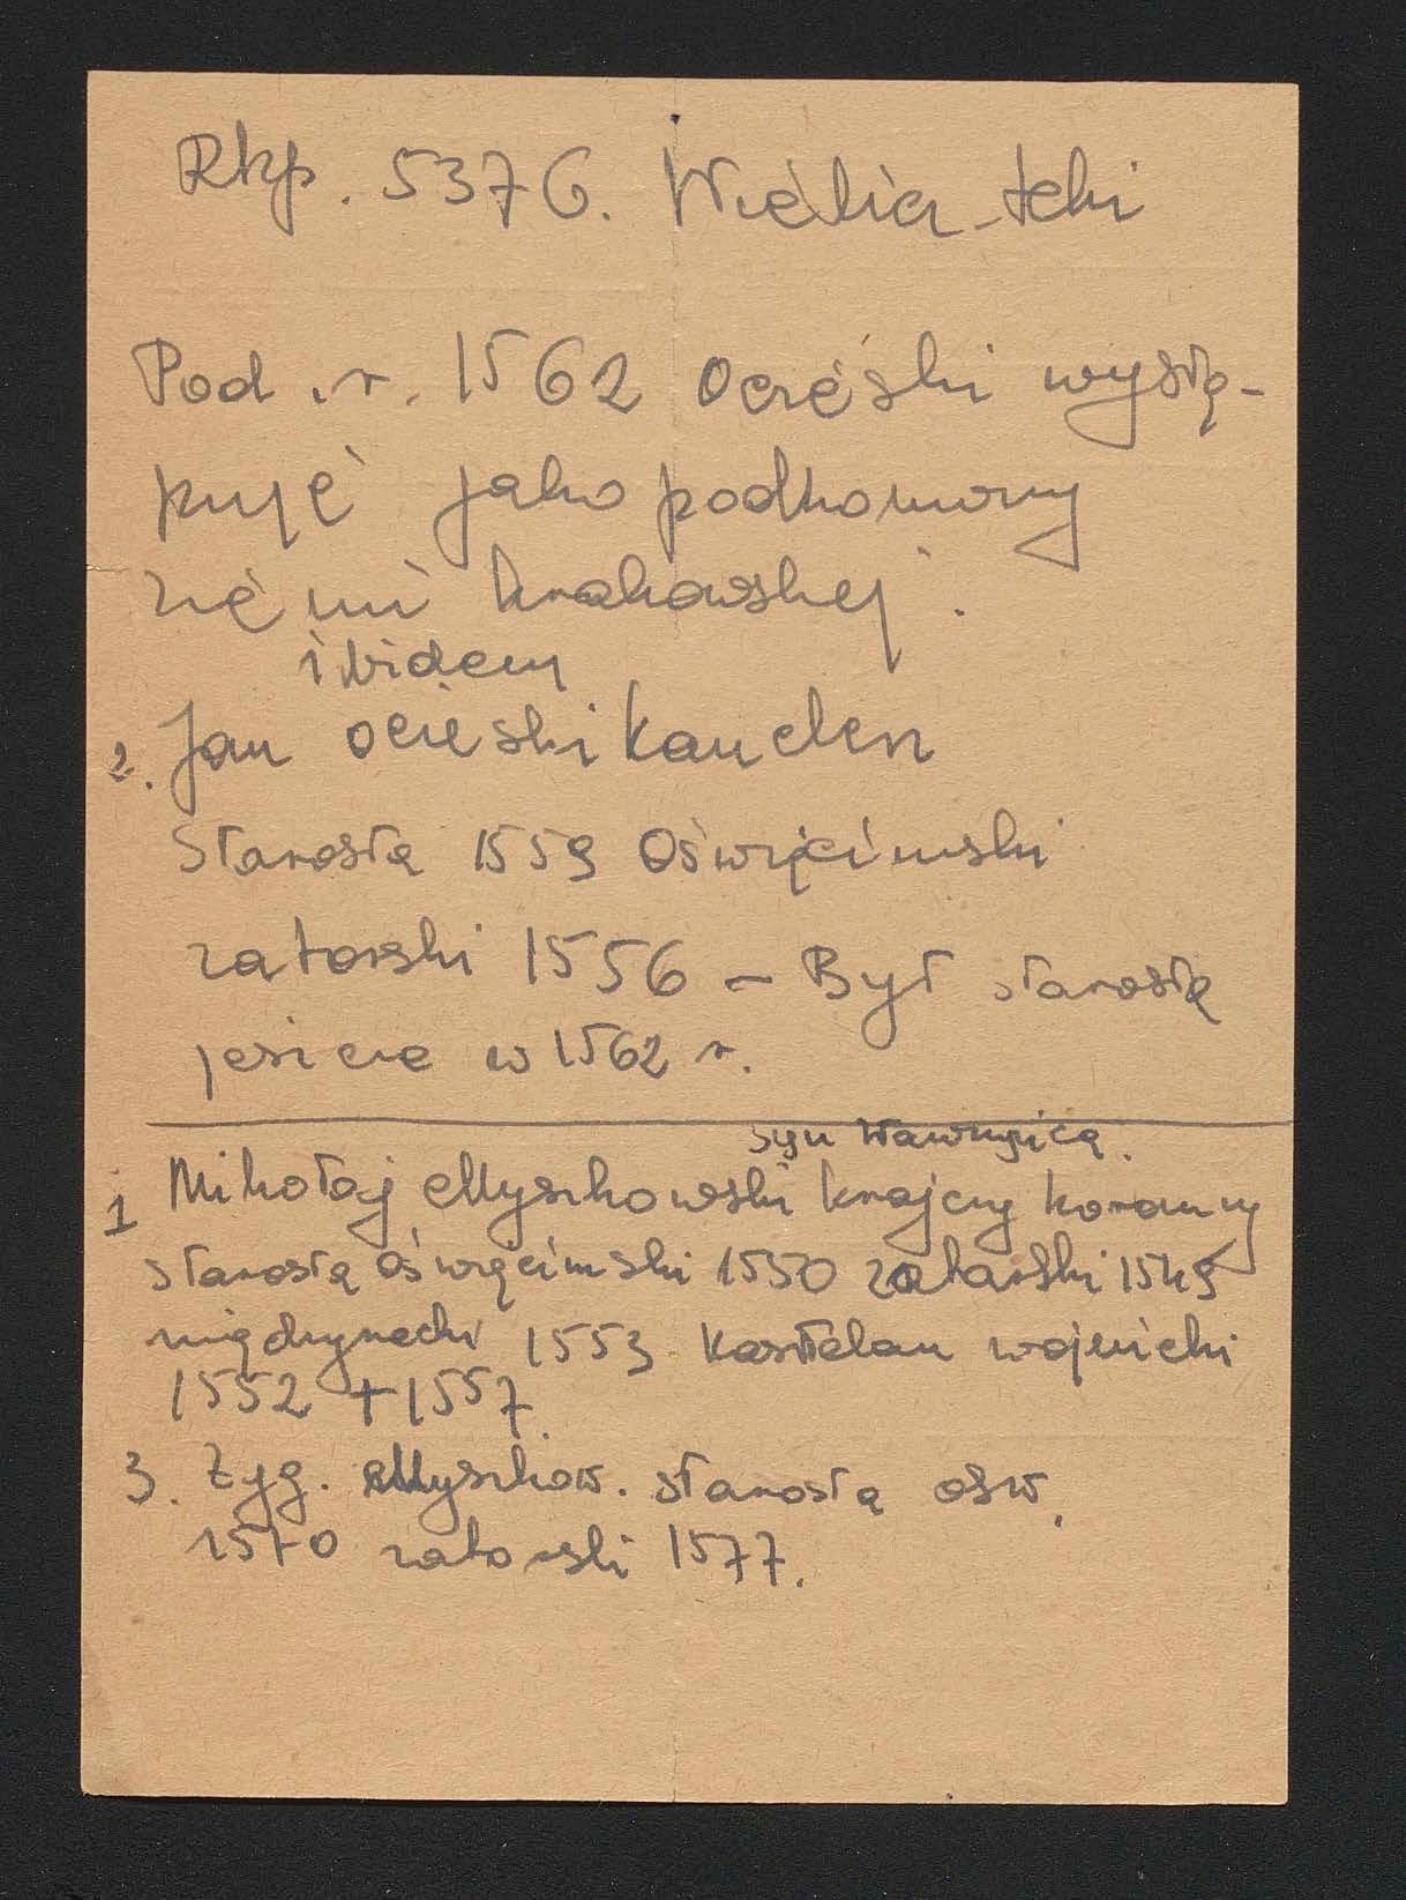 Rkp. 5376. Wieliczka - teki
Pod .r. 1562 Ocieski wystę-
puje jako podkomorzy
ziemi krakowskiej.
ibidem
2. Jan Ocieski kanclerz
Starosta 1559 Oświęcimski
zatorski 1556 - Był starostą
jeszcze w 1562 r.
syn Wawrzyńca.
1 Mikołaj Myszkowski krajczy koronny
starosta oświęcimski 1550 zatorski 1549
międzyrzecki 1553 Kasztelan wojnicki
1552 +1557.
3. Zyg. Myszkow. starosta ośw.
1570 zatorski 1577.